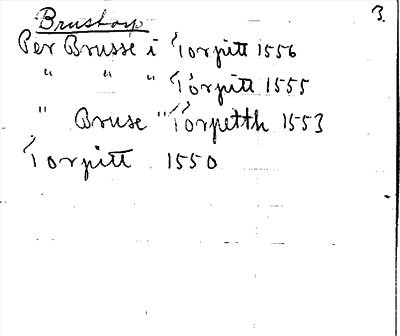 Brustorp 3.
Per Brusse i Torpitt 1556
" " " Torpitt 1555
" Bruse " Torpetth 1553
Torpitt 1550